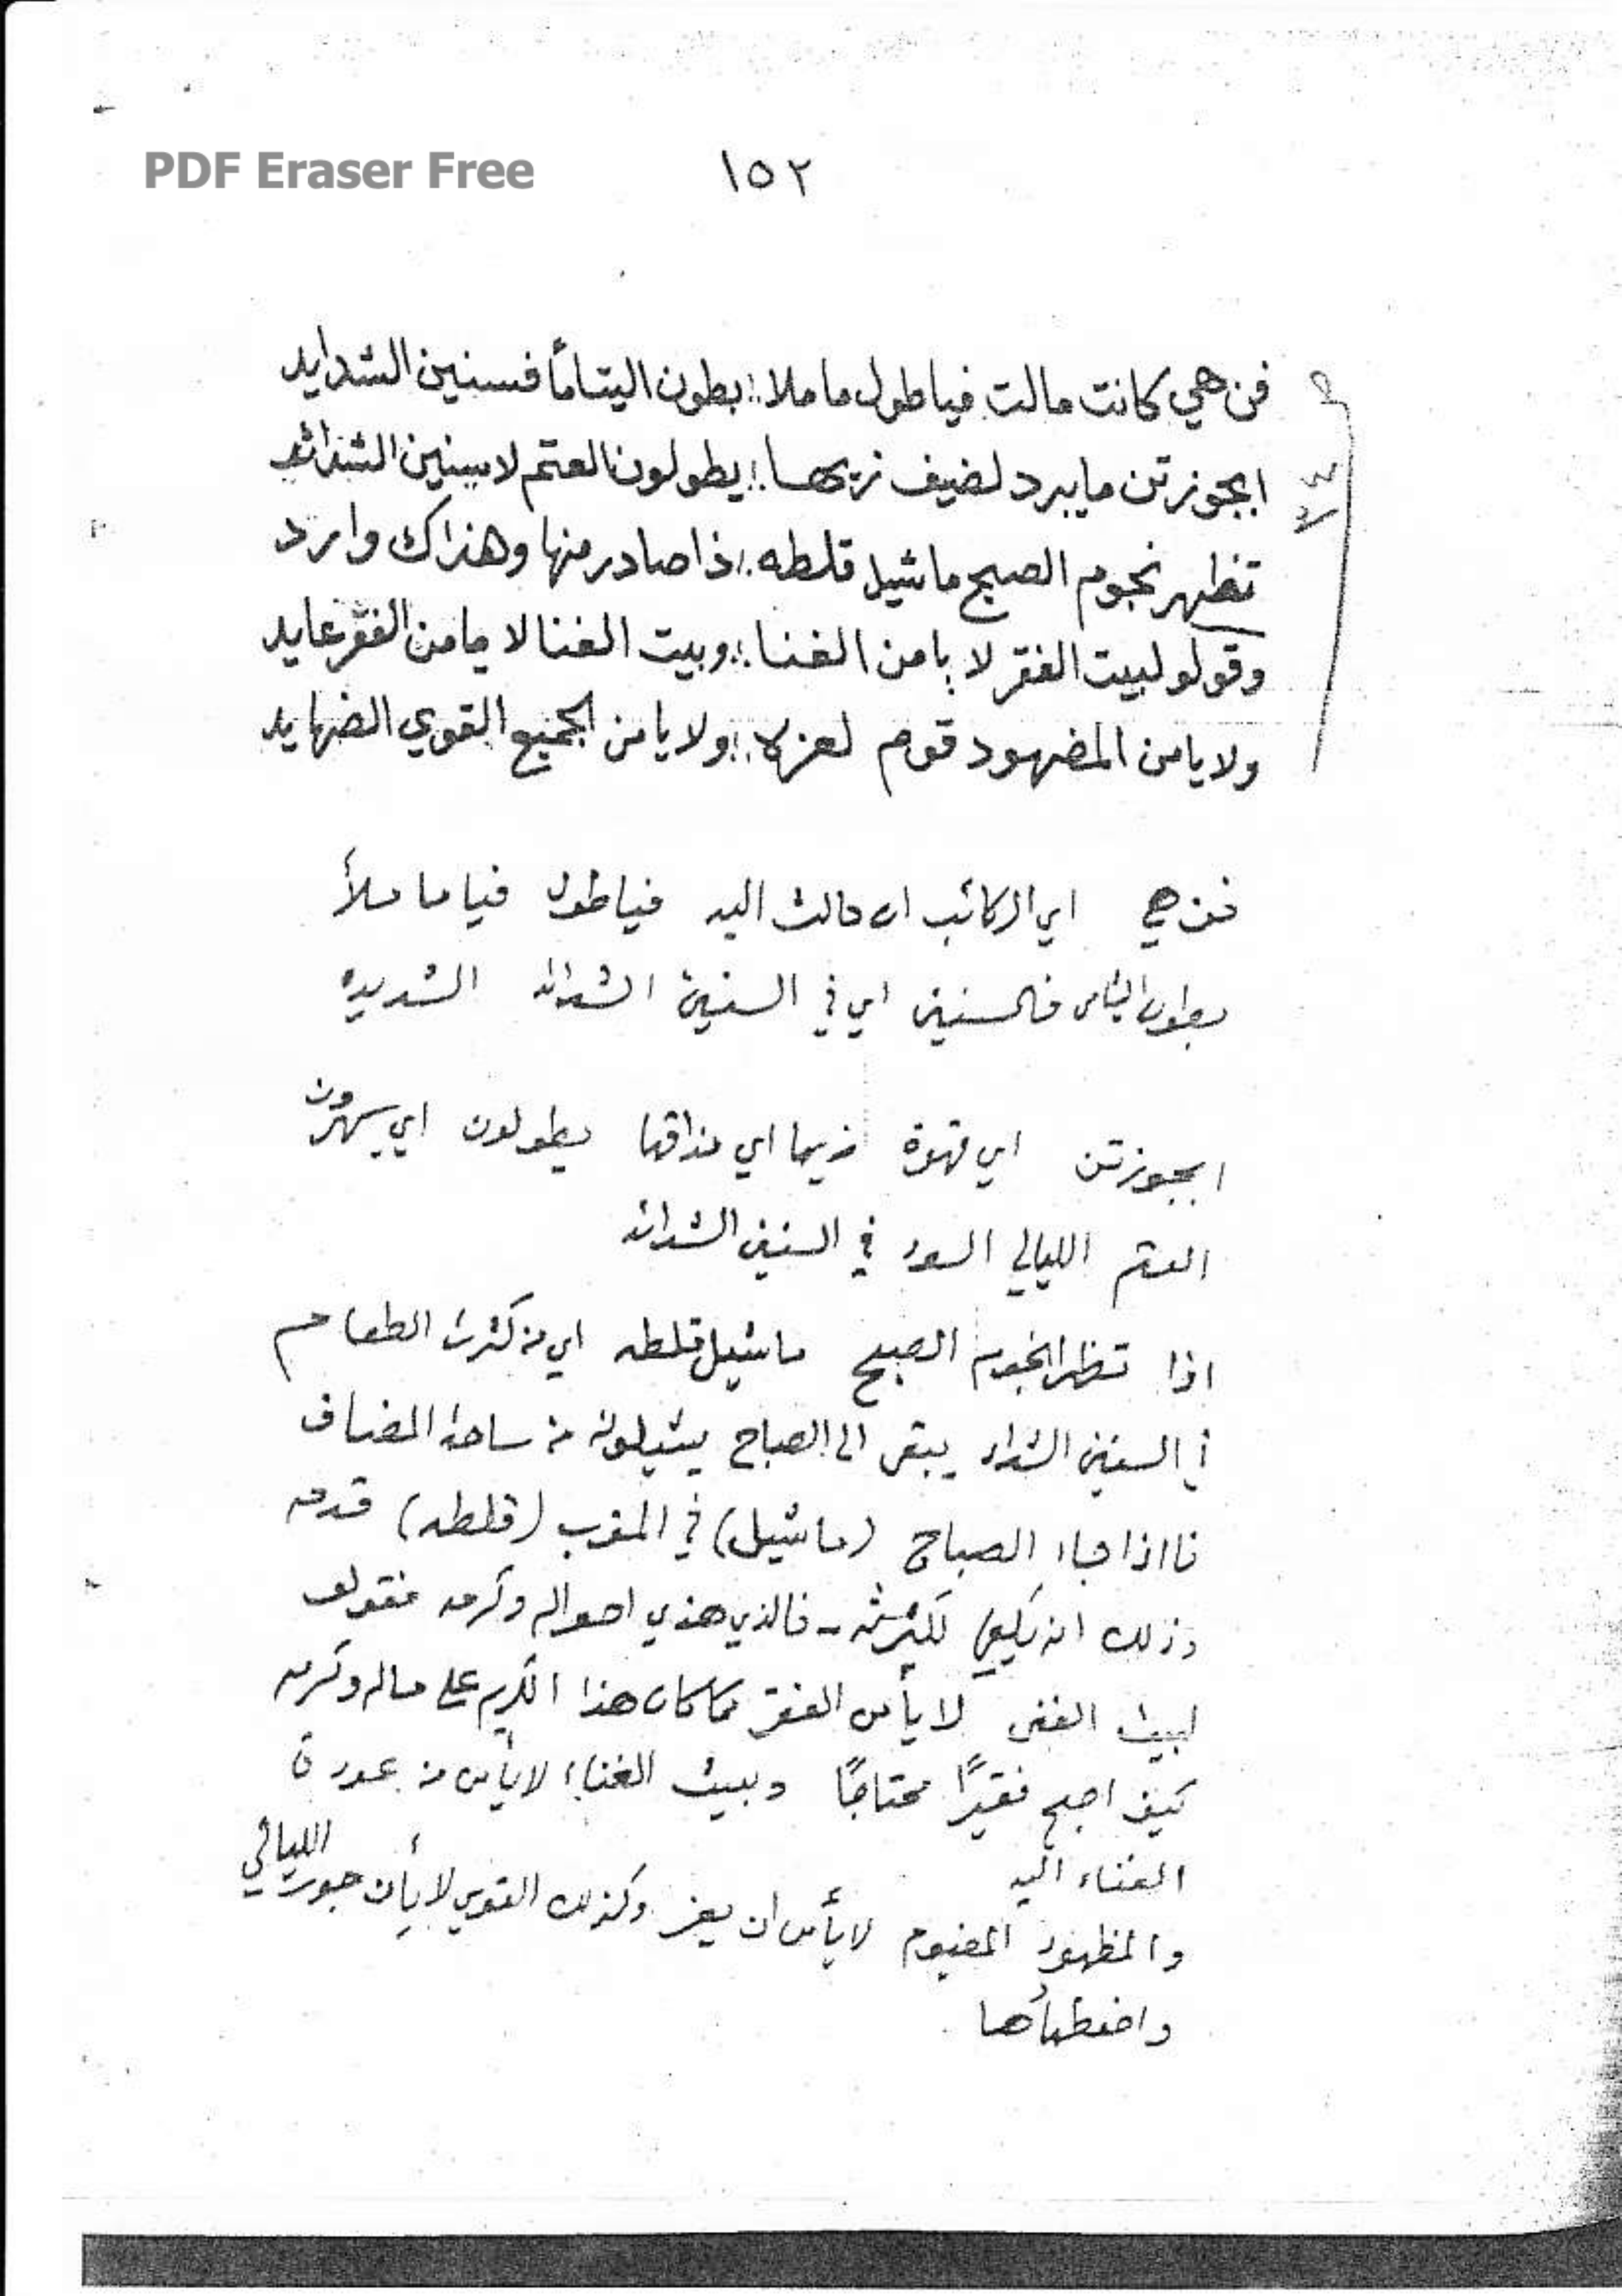 PDF Eraser Free
١٥٢
فن هي كانت مالت فياطول ما ملا :: بطون اليتاماً فسنين الشدايد
ابجوزتن مايبرد لضيف نزيها :: يطولون العتم لا سنين الشدائد
تظهر نجوم الصبح ماشيل قلطه :: ذا صادر منها وهذاك وارد
وقولو لبيت الفقر لا يامن الغنا :: وبيت الغنا لا يامن الفقر عايد
ولا يامن المضهود قوم لعزه :: ولا يامن الجميع القوي الضهايد
فن هي اي الركائب ان مالت اليه فياطول فيا ما ملأ
بطون اليتامى فالسنين اي في السنين الشدائد الشديده
ابجوزتن اي قهوة نزيها اي مذاقها يطولون اي يسهرون
العتم الليالي السود في السنين الشدائد
اذا تظهر النجوم الصبح ماشيل قلطه اي من كثرت الطعام
في السنين الشداد يبقى الى الصباح يشيلونه من ساحة المضاف
فااذا جاء الصباح (ماشيل) في المغرب (قلطه) قدمه
وذلك انه يكفي لكثرته - فالذي هذي احواله وكرمه فقولو
لبيت الغنى لا يأمن الفقر كما كان هذا الكريم على ماله وكرمه
كيف اصبح فقيرًا محتاجًا وبيت الغناء لا يأس من عودة
الغناء اليه
والمظهود المضيوم لا يأس ان يعز وكذلك القوي لا يأمن جور الليالي
واضطهادها